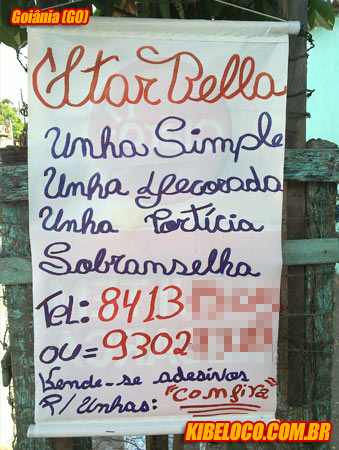 Goiânia (GO)
Star Bella
Unha Simple
Unha decorada
Unha Portícia
Sobranselha
Tel: 8413
ou = 9302
Vende-se adesivos
P/ Unhas: "Confira"
KIBELOCO.COM.BR